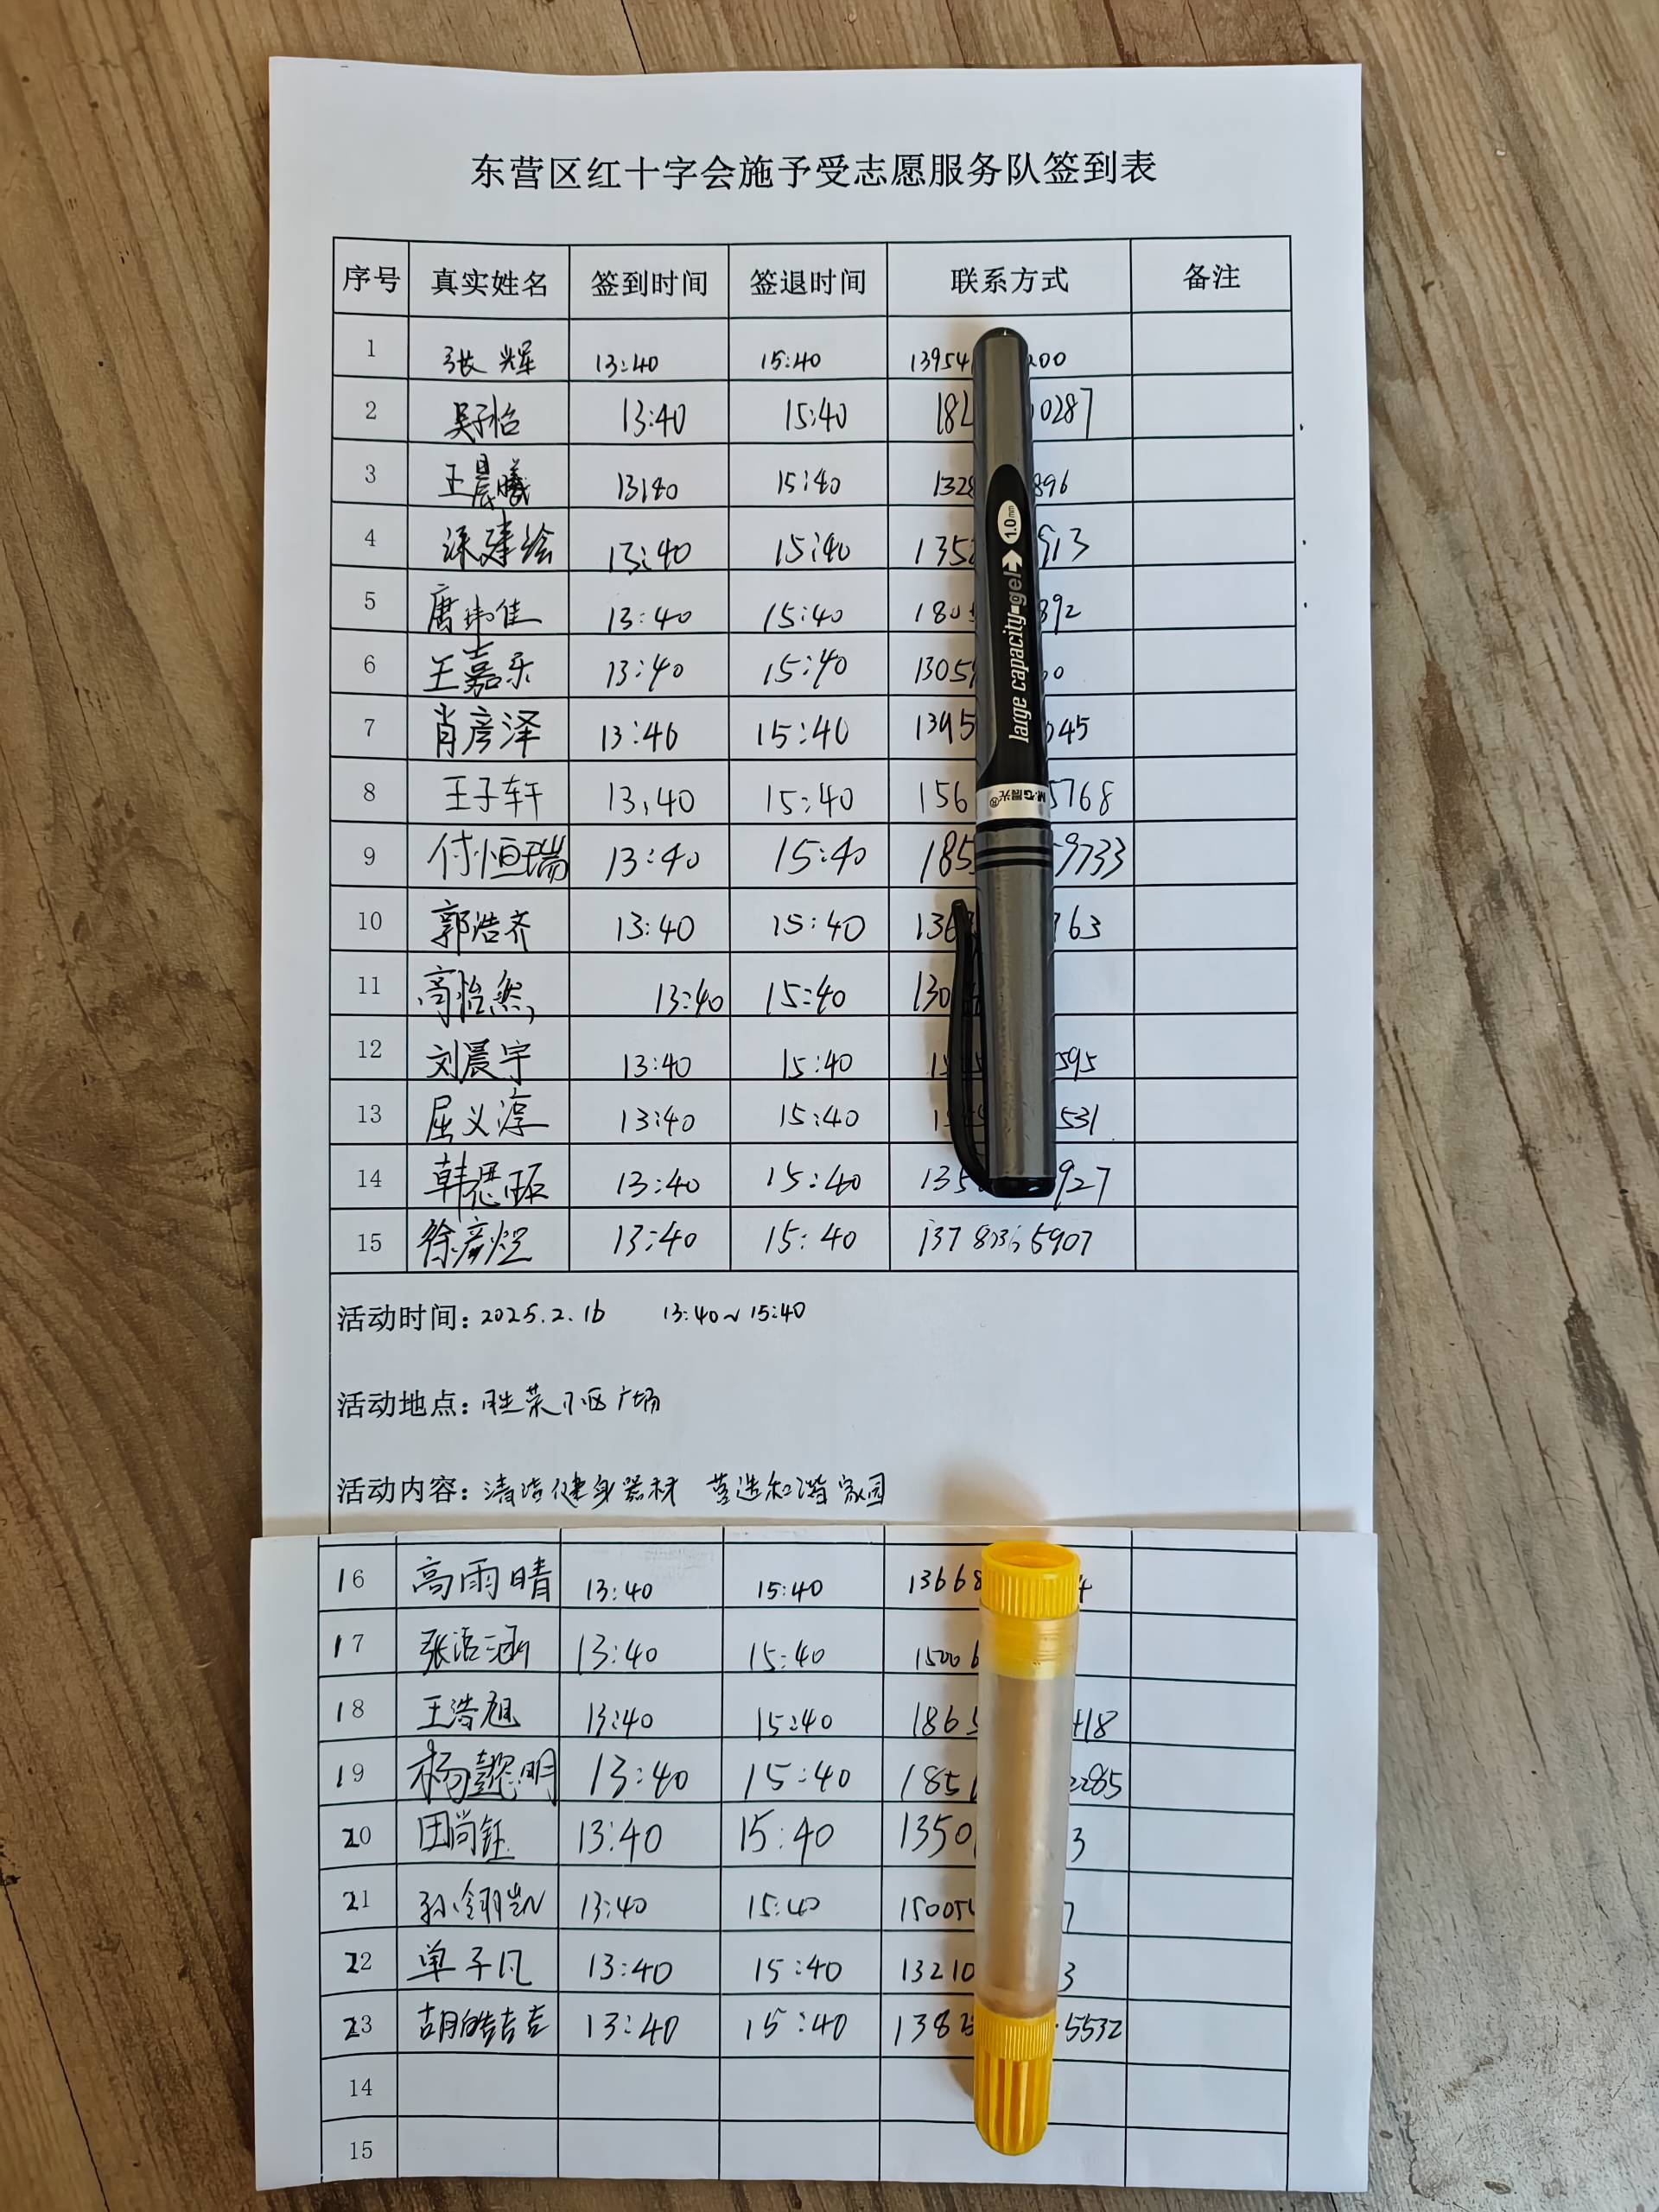 东营区红十字会施予受志愿服务队签到表
序号 真实姓名 签到时间 签退时间 联系方式 备注
1 张辉 13:40 15:40 13954 200
2 吴子怡 13:40 15:40 182 0287
3 王晨曦 13:40 15:40 132 896
4 建绘 13:40 15:40 135 913
5 唐玮佳 13:40 15:40 180 892
6 王嘉乐 13:40 15:40 1305 0
7 肖彦泽 13:40 15:40 1395 45
8 王子轩 13:40 15:40 156 5768
9 付恒瑞 13:40 15:40 185 9733
10 郭浩齐 13:40 15:40 136 763
11 高怡然 13:40 15:40 130
12 刘晨宇 13:40 15:40 1 595
13 屈义淳 13:40 15:40 1 531
14 韩 13:40 15:40 135 927
15 徐彦煜 13:40 15:40 137 5907
活动时间: 2025.2.16 13:40~15:40
活动地点: 胜荣小区广场
活动内容: 清洁健身器材 营造和谐家园
16 高雨晴 13:40 15:40 13668 4
17 张洁涵 13:40 15:40 15006
18 王浩旭 13:40 15:40 1865 418
19 杨懿明 13:40 15:40 185 2285
20 田尚钰 13:40 15:40 1350 3
21 孙翎凯 13:40 15:40 15005 7
22 单子凡 13:40 15:40 13210 3
23 胡皓喆 13:40 15:40 138 5532
14
15
large capacity gel 1.0mm
M&G晨光®